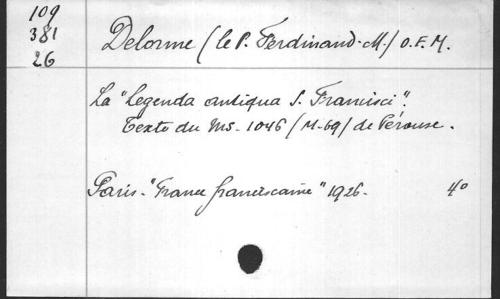 109
381
26
Delorme (le P. Ferdinand-M.) O.F.M.
La "Legenda antiqua S. Francisci".
Texte du Ms. 1046 (M.69) de Pérouse.
Paris. "France franciscaine" 1926. 4°